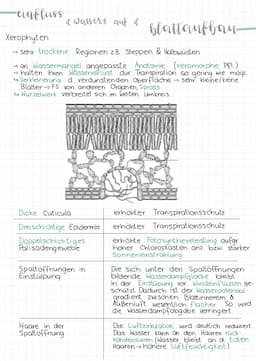 einfluss
d. wassers auf d.
blattaufbau
Xerophyten
→ sehr trockene Regionen z.B. Steppen & Halbwüsten
→ an Wassermangel angepasste Anatomie (xeromorphe Pfl.)
→ halten ihren Wasserverlust die Transpiration so gering wie mögl.
↳ Verkleinerung d. verdunstenden Oberfläche → sehr kleine/keine
Blätter → FS von anderen Organen, Spross
↳ Wurzelwerk verbreitet sich im weiten Umkreis
Dicke Cuticula
erhöhter Transpirationsschutz
Dreischichtige Epidermis
erhöhter Transpirationsschutz
Doppelschichtiges
Palisadengewebe
erhöhte Fotosyntheseleistung aufgr.
hoher Chloroplasten anz. bzw. starker
Sonneneinstrahlung
Spaltöffnungen in
Einstülpung
Die sich unter den Spaltöffnungen
bildende Wasserdampfglocke bleibt
in der Einstülpung vor Windeinflüssen ge-
schützt. Dadurch ist der Wasserpotenzial-
gradient zwischen Blattinnerem &
Außenluft wesentlich flacher. So wird
die Wasserdampfabgabe verringert
Haare in der
Spaltöffnung
Die Luftzirkulation wird deutlich reduziert.
Das Wasser kann an den Haaren rück-
kondensieren (Wasser bleibt an d. toten
Haaren → höhere Luftfeuchte)